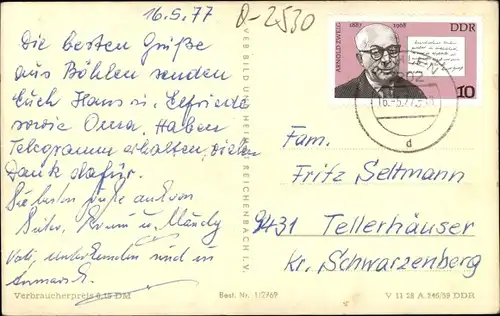 16.5.77
D-2530
Die besten Grüße
aus Böhlen senden
Euch Hans u. Elfriede
sowie Oma. Haben
Telegramm erhalten, vielen
Dank dafür.
Die besten Grüße auch von
u. Mändy
Vati, unterkunden sind in
VEB BILD UND HEIMAT REICHENBACH I.V.
ARNOLD ZWEIG
1887 1968
DDR
10
16.-5.77
d
Fam.
Fritz Seltmann
9431 Tellerhäuser
Kr. Schwarzenberg
Verbraucherpreis 0,15 DM
Best. Nr. 1/2769
V 11 28 A 346/59 DDR